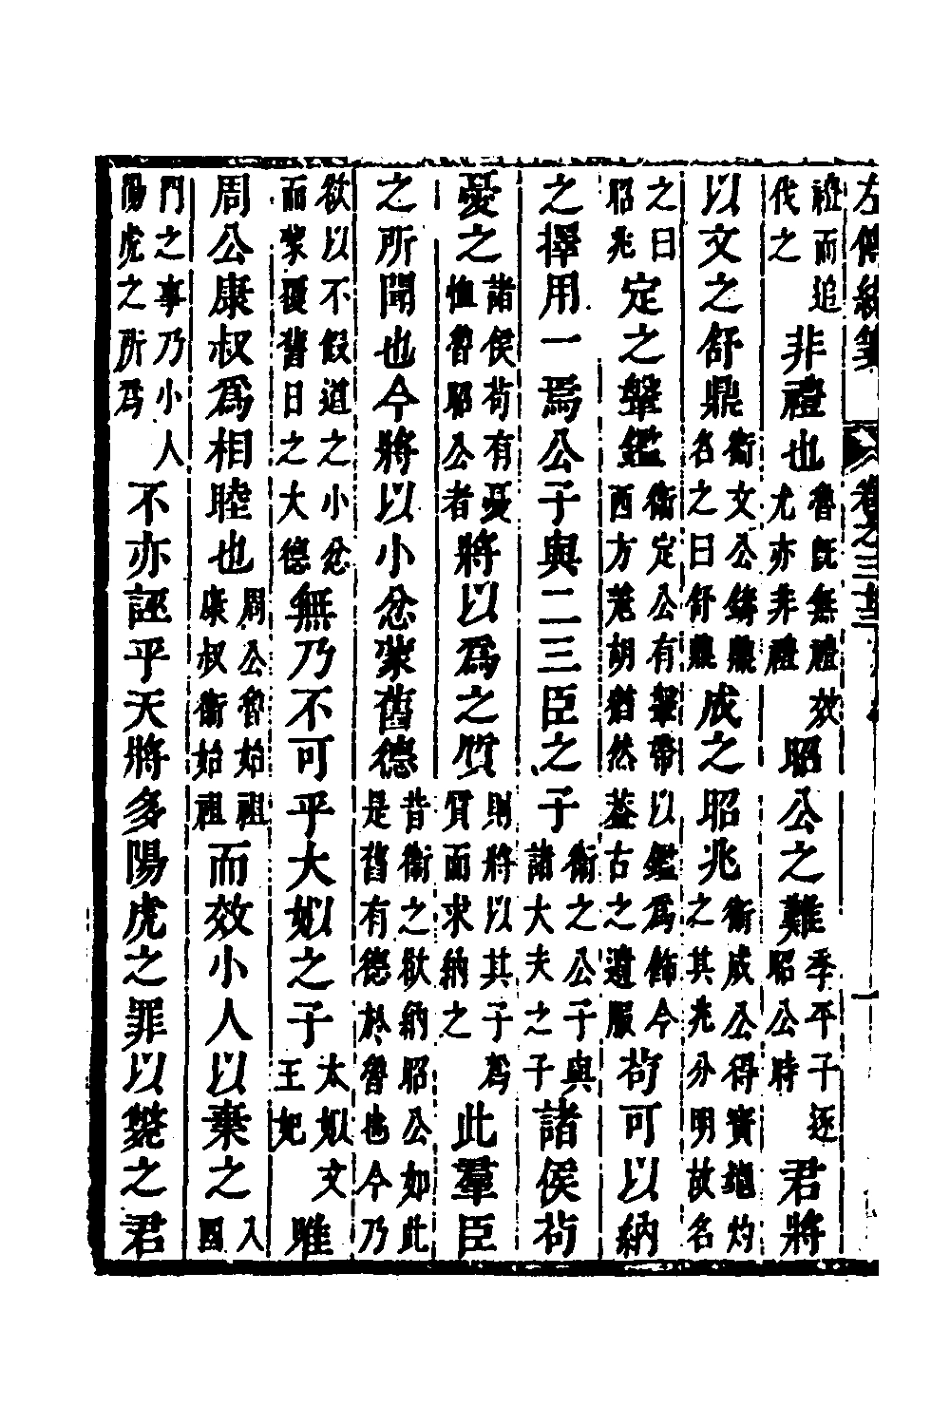 左傳統箋 卷之三十三
而追伐之非禮也魯既無禮效尤亦非禮昭公之難季平子逐昭公時君將
以文之舒鼎衛文公鑄鼎名之曰舒鼎成之昭兆衛成公得寳龜灼之其兆分明故名
之曰昭兆定之鞶鑑衛定公有鞶帶以鑑爲飾今西方羗胡猶然蓋古之遺服苟可以納
之擇用一焉公子與二三臣之子衛之公子與諸大夫之子諸侯苟
憂之諸侯苟有憂恤魯昭公者將以爲之質則將以其子爲質而求納之此羣臣
之所聞也今將以小忿蒙舊德昔衛之欲納昭公如此是舊有德於魯也今乃
欲以不假道之小忿而蒙覆舊日之大德無乃不可乎大姒之子太姒文王妃唯
周公康叔爲相睦也周公魯始祖康叔衛始祖而效小人以棄之入國
門之事乃小人陽虎之所爲不亦誣乎天將多陽虎之罪以斃之君